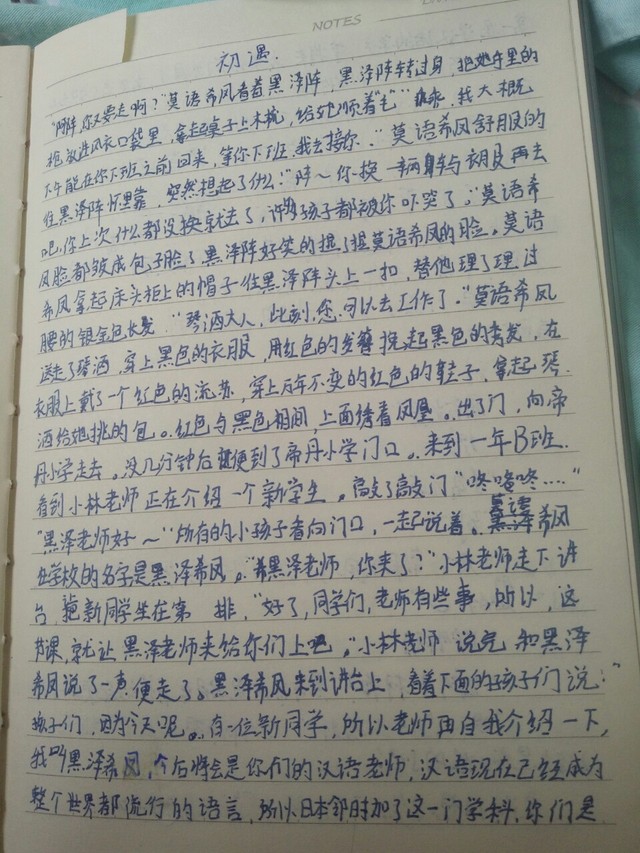 NOTES
初遇.
"阿阵,你又要走啊?"莫语希风看着黑泽阵,黑泽阵转过身,把她手里的
枪放进风衣口袋里,拿起桌子上木梳,给她顺着"毛""乖乖,我大概
下午能在你下班之前回来,等你下班,我去接你."莫语希风舒服的
往黑泽阵怀里靠,突然想起了什么:"阵~你换一辆车与衣服再去
吧,你上次什么都没换就去了,许多孩子都被你吓哭了。"莫语希
风脸都皱成包子脸了,黑泽阵好笑的捏了捏莫语希风的脸。莫语
希风拿起床头柜上的帽子往黑泽阵头上一扣,替他理了理过
腰的银金色长发."琴酒大人,此刻,您可以去工作了."莫语希风
送走了琴酒,穿上黑色的衣服,用红色的发簪挽起黑色的秀发,在
衣服上戴了一个红色的流苏,穿上万年不变的红色的鞋子,拿起琴
酒给她挑的包。红色与黑色相间,上面绣着凤凰。出了门,向帝
丹小学走去。没几分钟后便到了帝丹小学门口。来到一年B班.
看到小林老师正在介绍一个新学生。敲了敲门"咚咚咚……"
"黑泽老师好~"所有的小孩子看向门口,一起说着。莫语希风
在学校的名字是黑泽希风。"黑泽老师,你来了?"小林老师走下讲
台,把新同学生在第 排,"好了,同学们,老师有些事,所以,这
节课,就让黑泽老师来给你们上吧。"小林老师 说完 和黑泽
希风说了一声,便走了。黑泽希风来到讲台上,看着下面的孩子们说:"
孩子们,因为今天呢。有一位新同学,所以老师再自我介绍一下,
我叫黑泽希风,今后将会是你们的汉语老师,汉语现在已经成为
整个世界都流行的语言,所以日本临时加了这一门学科,你们是